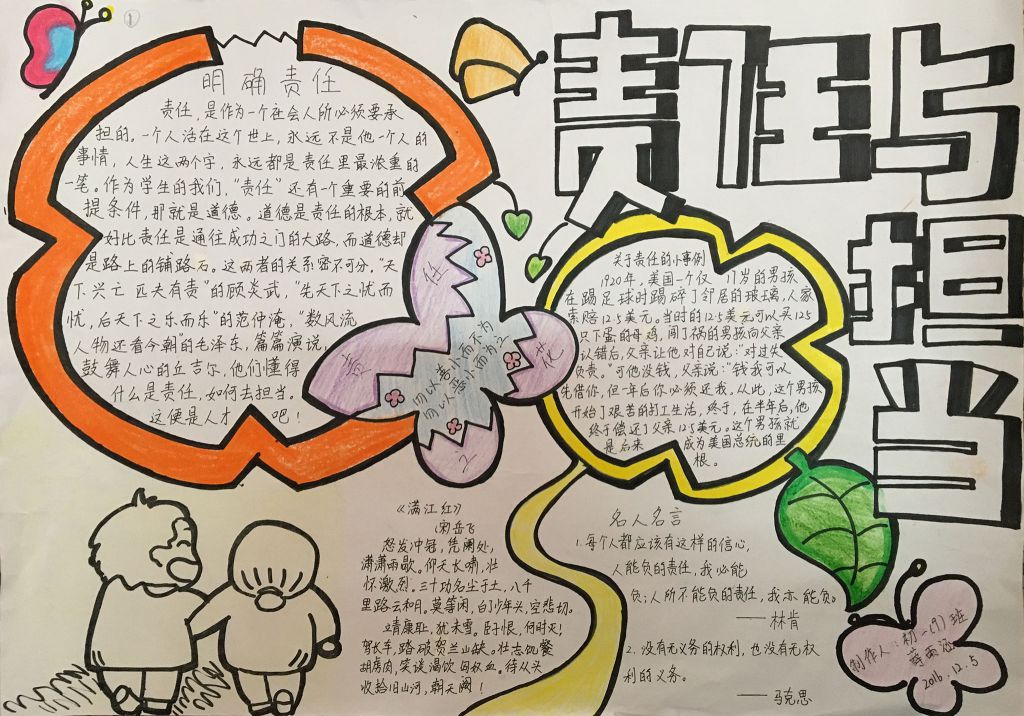 ①
责任与担当
明确责任
责任，是作为一个社会人所必须要承
担的。一个人活在这个世上，永远不是他一个人的
事情，人生这两个字，永远都是责任里最浓重的
一笔。作为学生的我们，“责任”还有一个重要的前
提条件，那就是道德。道德是责任的根本，就
好比责任是通往成功之门的大路，而道德却
是路上的铺路石。这两者的关系密不可分，“天
下兴亡 匹夫有责”的顾炎武，“先天下之忧而
忧，后天下之乐而乐”的范仲淹，“数风流
人物还看今朝的毛泽东，篇篇演说，
鼓舞人心的丘吉尔，他们懂得
什么是责任，如何去担当。
这便是人才 吧！
责
任
之
花
勿以善小而不为
勿以恶小而为之
关于责任的小事例
1920年，美国一个仅 11岁的男孩
在踢足球时踢碎了邻居的玻璃，人家
索赔12.5美元。当时的12.5美元可以买125
只下蛋的母鸡，闯了祸的男孩向父亲
认错后，父亲让他对自己说：“对过失
负责。”可他没钱，父亲说：“钱我可以
先借你，但一年后你必须还我，从此，这个男孩
开始了艰苦的打工生活，终于，在半年后，他
终于偿还了父亲12.5美元。这个男孩就
是后来 成为美国总统的里
根。
《满江红》
(宋)岳飞
怒发冲冠，凭阑处，
潇潇雨歇。仰天长啸，壮
怀激烈。三十功名尘于土，八千
里路云和月。莫等闲，白了少年头，空悲切。
靖康耻，犹未雪。臣子恨，何时灭！
驾长车，踏破贺兰山缺。壮志饥餐
胡虏肉，笑谈渴饮匈奴血。待从头
收拾旧山河，朝天阙！
名人名言
1.每个人都应该有这样的信心，
人能负的责任，我必能
负；人所不能负的责任，我亦能负。
——林肯
2.没有无义务的权利，也没有无权
利的义务。
——马克思
制作人：初一(9)班
2016.12.5